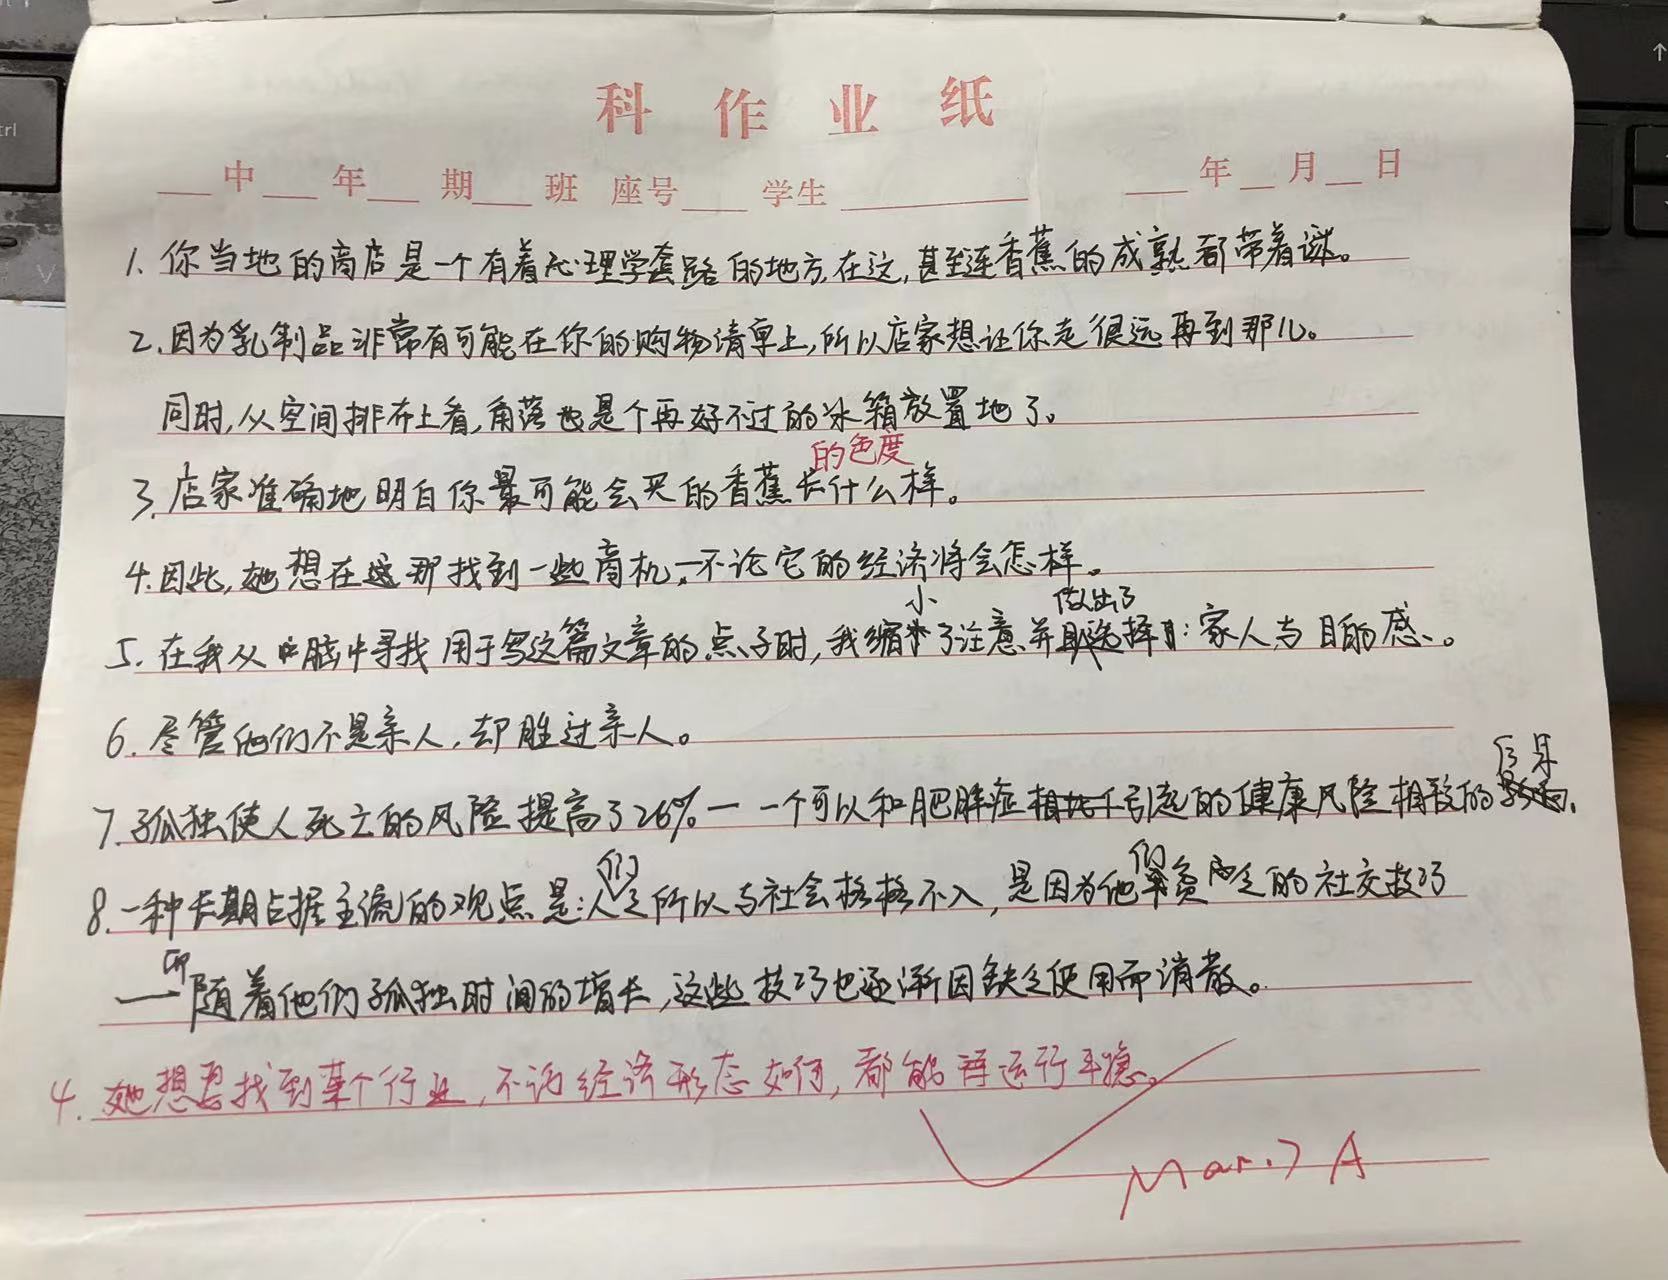 科作业纸
中 年 期 班 座号 学生 年 月 日
1. 你当地的商店是一个有着心理学套路的地方,在这,甚至连香蕉的成熟都带着谜。
2. 因为乳制品非常有可能在你的购物清单上,所以店家想让你走很远再到那儿。
同时,从空间排布上看,角落也是个再好不过的冰箱放置地了。
的色度
3. 店家准确地明白你最可能会买的香蕉长什么样。
4. 因此,她想在那找到一些商机,不论它的经济将会怎样。
小 做出了
5. 在我从电脑中寻找用于写这篇文章的点子时,我缩了注意并且选择:家人与目的感。
6. 尽管他们不是亲人,却胜过亲人。
后果
7. 孤独使人死亡的风险提高了26%——一个可以和肥胖症引起的健康风险相较的影响。
们 们
8. 一种长期占据主流的观点是:人之所以与社会格格不入,是因为他贫乏的社交技巧
即
——随着他们孤独时间的增长,这些技巧也逐渐因缺乏使用而消散。
4. 她想要找到某个行业,不论经济形态如何,都能再运行平稳。
Mar.7 A